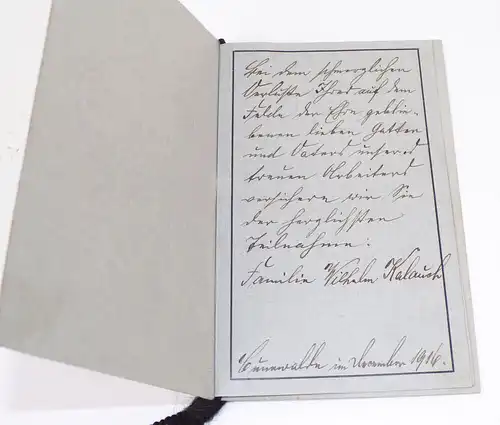 Bei dem schmerzlichen
Verluste Ihres auf dem
Felde der Ehre geblie-
benen lieben Gatten
und Vaters unseres
treuen Arbeiters
versichern wir Sie
der herzlichsten
Teilnahme:
Familie Wilhelm Kalauch
Cunewalde im December 1916.